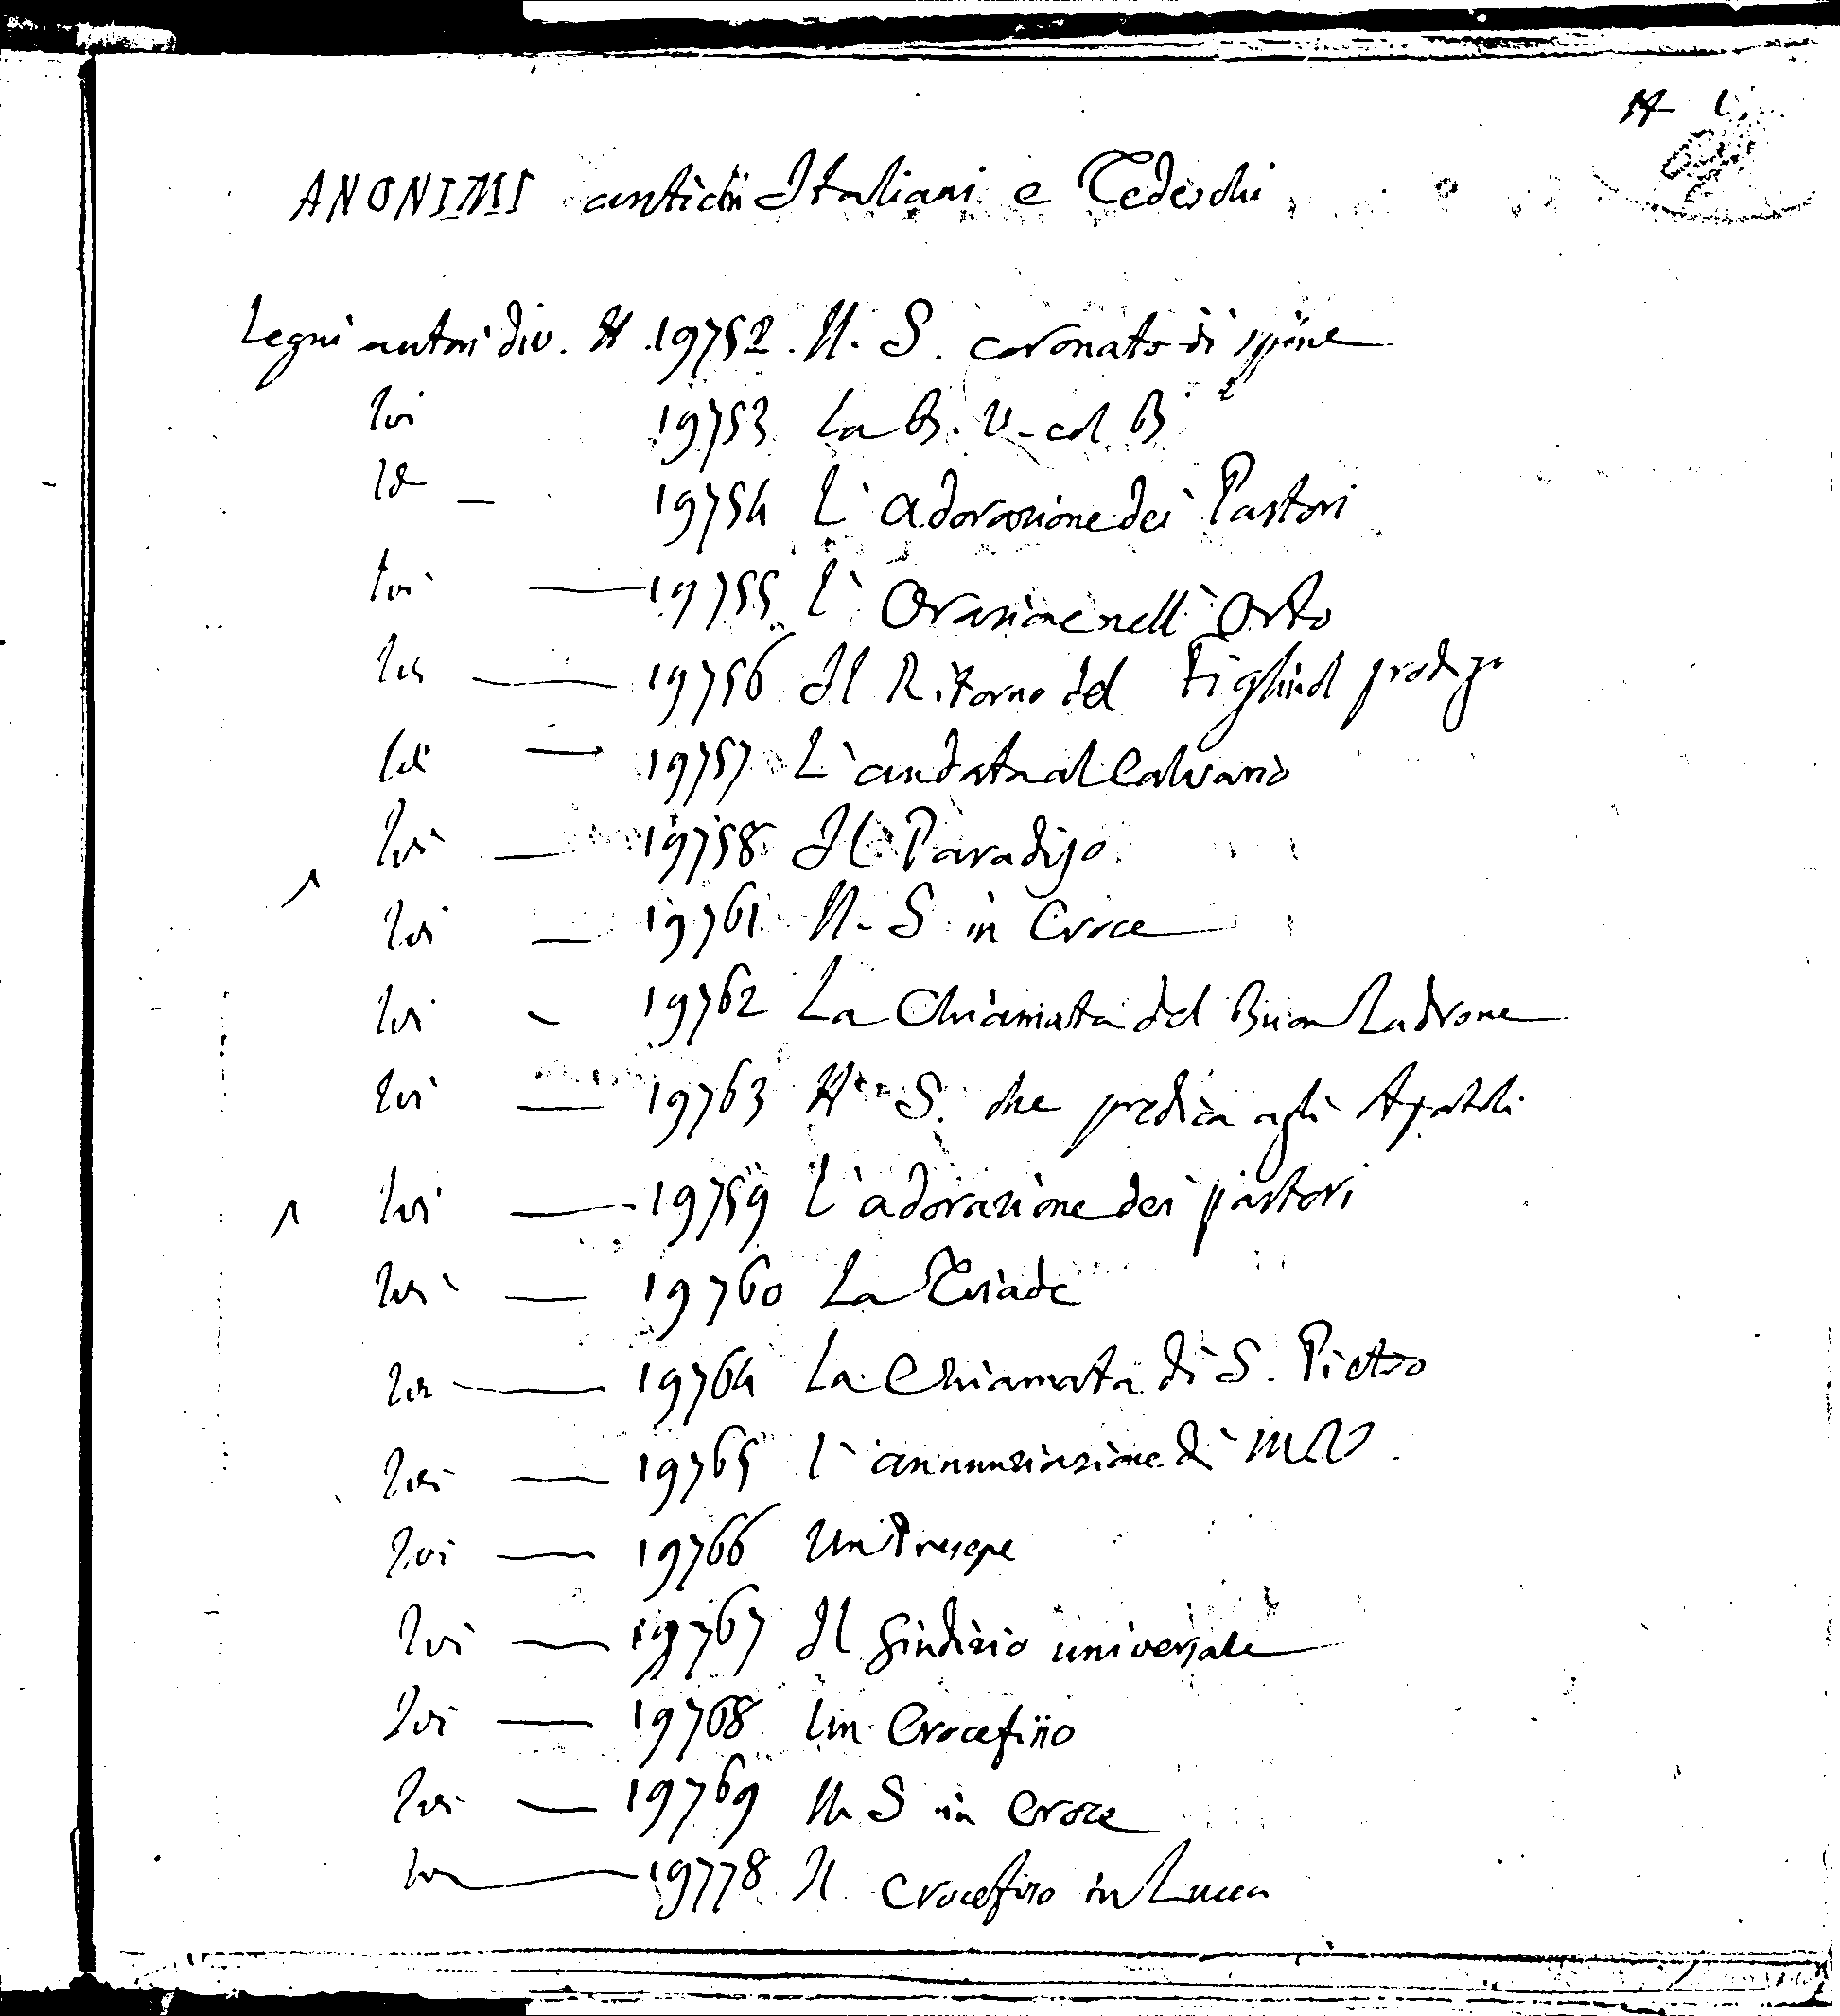 ANONIMI antichi Italiani e Tedeschi
Legni autori div. N. 19752. N. S. coronato di spine
Ivi 19753 La B. V. col B
Id — 19754 L'Adorazione dei Pastori
Ivi — 19755 L'Orazione nell'Orto
Ivi — 19756 Il Ritorno del Figliuol prodigo
Id — 19757 L'andata al Calvario
Ivi — 19758 Il Paradiso
Ivi — 19761 N. S in Croce
Ivi — 19762 La Chiamata del Buon Ladrone
Ivi — 19763 N. S. che predica agli Apostoli
Ivi — 19759 L'adorazione dei pastori
Ivi — 19760 La Triade
Ivi — 19764 La Chiamata di S. Pietro
Ivi — 19765 l'annunziazione di M V.
Ivi — 19766 Un Presepe
Ivi — 19767 Il Giudizio universale
Ivi — 19768 Un Crocefisso
Ivi — 19769 N. S in Croce
Ivi — 19778 Il Crocefisso in Lucca